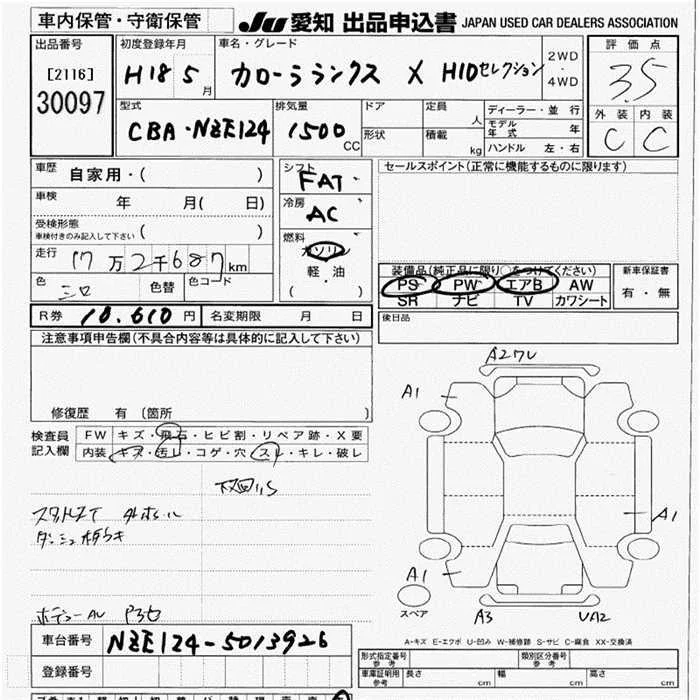 車内保管・守衛保管
JU 愛知 出品申込書 JAPAN USED CAR DEALERS ASSOCIATION
出品番号 初度登録年月 車名・グレード 2WD・4WD 評価点
[2116] H18 5月 カローラランクス X HIDセレクション 3.5
30097
型式 排気量 ドア 定員 人 ディーラー・並行 外装 内装
CBA-NZE124 1500CC 形状 積載 kg モデル年式 年 C C
ハンドル 左・右
車歴 自家用・( ) シフト FAT セールスポイント(正常に機能するものに限ります)
車検 年 月( 日) 冷房 AC
受検形態 車検付きのみ記入して下さい ( ) 燃料 ガソリン
走行 17万2千687km 軽・油
色 シロ 色替 色コード ( ・ )
装備品(純正品に限り○をつけてください) 新車保証書
PS PW エアB AW 有・無
SR ナビ TV カワシート
R券 10.610円 名変期限 月 日 後日品
注意事項申告欄(不具合内容等は具体的に記入して下さい)
修復歴 有 (箇所 )
検査員記入欄 FW キズ・飛石・ヒビ割・リペア跡・X要
内装 キズ・汚レ・コゲ・穴・スレ・キレ・破レ
下回リS
A27U
A1
A1
A1
スペア A3 UA2
A-キズ E-エクボ U-凹み W-補修跡 S-サビ C-腐食 XX-交換済
車台番号 NZE124-5013926
登録番号
形式指定番号 参考 類別区分番号 参考
車庫証明用 参考 長さ cm 幅 cm 高さ cm